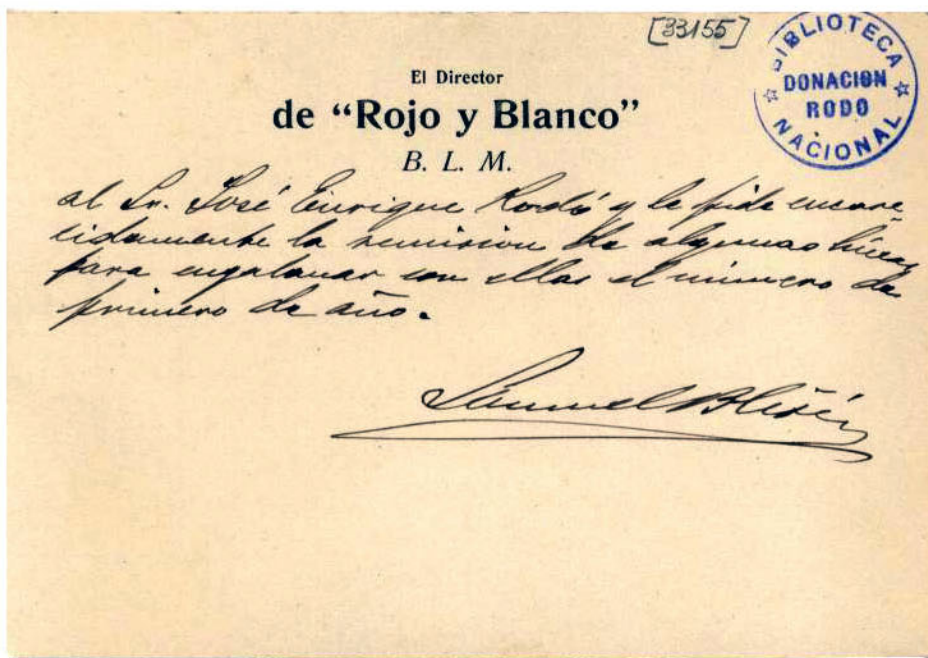 [33155]
BIBLIOTECA
DONACION
RODO
NACIONAL
El Director
de “Rojo y Blanco”
B. L. M.
al Sr. José Enrique Rodó y le pide encare
cidamente la remision de algunas líneas
para engalanar con ellas el número de
primero de año.
Samuel Blixén